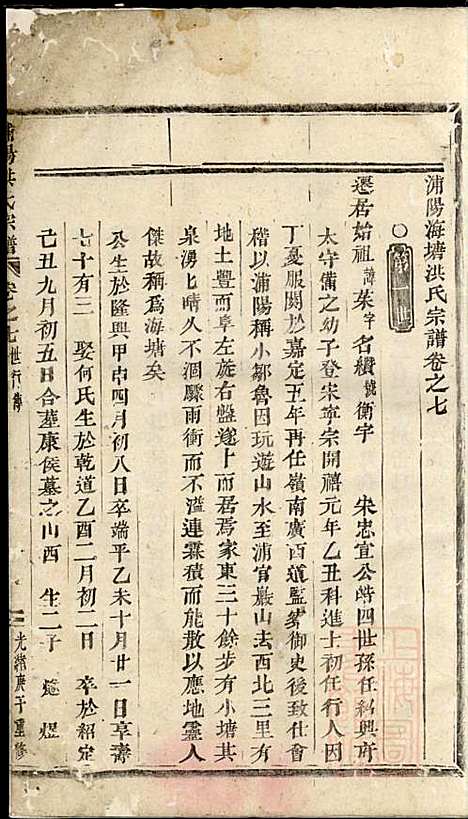 浦陽海塘洪氏宗譜卷之七
○
遷居始祖諱荣字名纘號衡宇 宋忠宣公皓四世孫任紹興府
太守備之幼子登宋寧宗開禧元年乙丑科進士初任行人因
丁憂服闋於嘉定五年再任嶺南廣西道監察御史後致仕會
稽以浦陽稱小鄒魯因玩遊山水至浦官巖山去西北三里有
地土豐而阜左旋右盤遂卜而居焉家東三十餘步有小塘其
泉湧匕晴久不涸驟雨衝而不溢連霖積而能散以應地靈人
傑故稱爲海塘矣
公生於隆興甲申四月初八日卒端平乙未十月廿一日享壽
七十有三 娶何氏生於乾道乙酉二月初二日 卒於紹定
己丑九月初五日合墓康侯墓之山西 生二子 煜
陽洪氏宗譜 卷之七 世行傳
光緒庚子重修